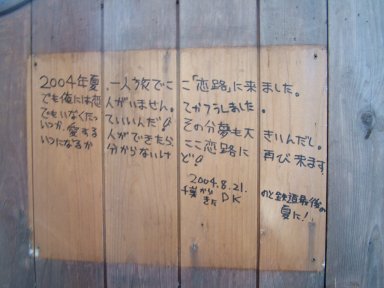 2004年夏、一人旅でここ「恋路」に来ました。
でも俺には恋人がいません。てかフラしました。
でもいなくたっていいんだ!その分夢も大きいんだし。
いつか、愛する人ができたら、ここ恋路に再び来ます
いつになるか分からないけど!
2004.8.21.
千葉から
きた DK
のと鉄道最後の
夏に!